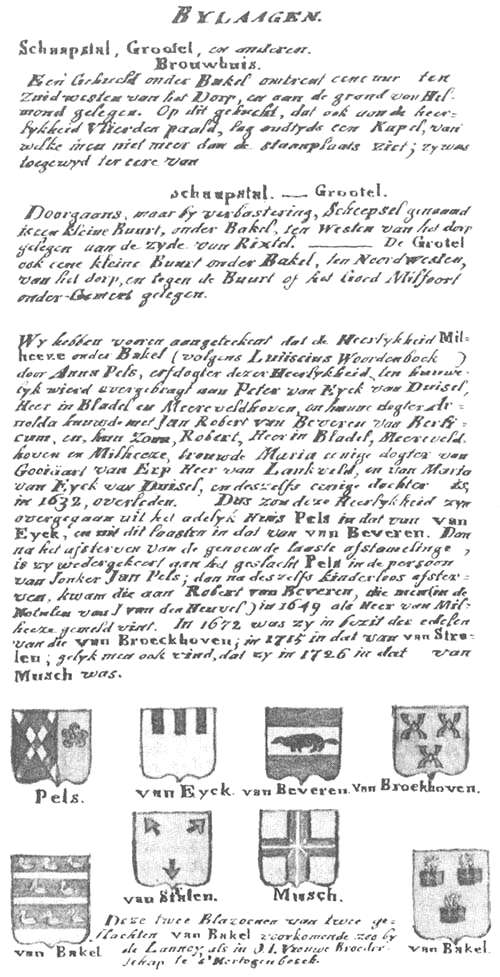 BYLAAGEN.
Schaapstal, Grootel, en anderen.
Brouwhuis.
Een Gehucht onder Bakel omtrent eene uur ten
Zuidwesten van het Dorp, en aan de grond van Hel-
mond gelegen. Op dit gehucht, dat ook aan de heer-
lykheid Vlierden paald, lag oudtyds een Kapel, van
welke men niet meer dan de staanplaats ziet; zy was
toegewyd ter eere van
Schaapstal. — Grootel.
Doorgaans, maar by verbastering, Scheepsel genaamd
is een kleine Buurt, onder Bakel, ten Westen van het dorp
gelegen aan de zyde van Rixtel. — De Grotel
ook eene kleine Buurt onder Bakel, ten Noordwesten,
van het dorp, en tegen de Buurt of het Goed Milfoort
onder Gemert gelegen.
Wy hebben vooren aangetekent dat de Heerlykheid Mil-
heeze onder Bakel (volgens Luiiscius Woordenboek )
door Anna Pels, erfdogter dezer Heerlykheid, ten huwe-
lyk wierd overgebragt aan Peter van Eyck van Duisel,
Heer in Bladel en Meereveldhoven, en hunne dogter Ar-
nolda huwde met Jan Robert van Beveren van Berli-
cum, en, hun Zoon, Robert, Heer in Bladel, Meereveld
hoven en Milheeze, trouwde Maria eenige dogter van
Gooiaart van Erp Heer van Lankveld, en van Maria
van Eyck van Duisel, en deszelfs eenige dochter is,
in 1632, overleden. Dus zou deze Heerlykheid zyn
overgegaan uit het adelyk Huis Pels in dat van van
Eyck, en uit dit laasten in dat van van Beveren. Dan
na het afsterven van de genoemde laaste afstamelinge,
is zy wedergekeert aan het geslacht Pels in de persoon
van Jonker Jan Pels; dan na deszelfs kinderloos afster-
ven, kwam die aan Robert van Beveren, die men (in de
Notulen van J van den Heuvel) in 1649 als Heer van Mil-
heeze gemeld vint. In 1672 was zy in bezit der edelen
van die van Broeckhoven; in 1715 in dat van van Stra-
len; gelyk men ook vind, dat zy in 1726 in dat van
Musch was.
Pels.
van Eyck.
van Beveren.
van Broekhoven.
van Stralen.
Musch.
van Bakel
Deze twee Blazoenen van twee ge-
slachten van Bakel voorkomende zoo by
de Lannoy, als in O. L. Vrouwe Broeder-
schap te s'Hertogenbosch.
van Bakel.